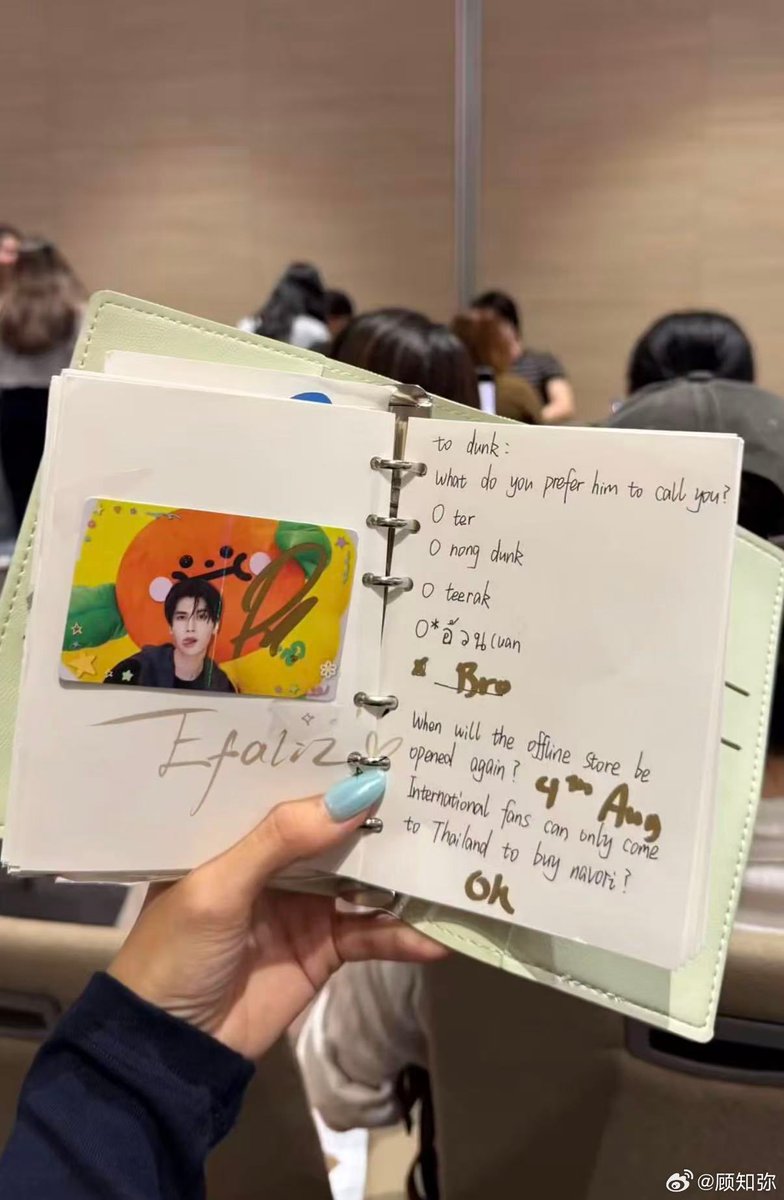 Efaliz
to dunk:
What do you prefer him to call you?
O ter
O nong dunk
O teerak
O*อ้วนcuan
Bro
When will the offline store be
opened again? 4th Aug
International fans can only come
to Thailand to buy navori?
Ok
@顾知弥